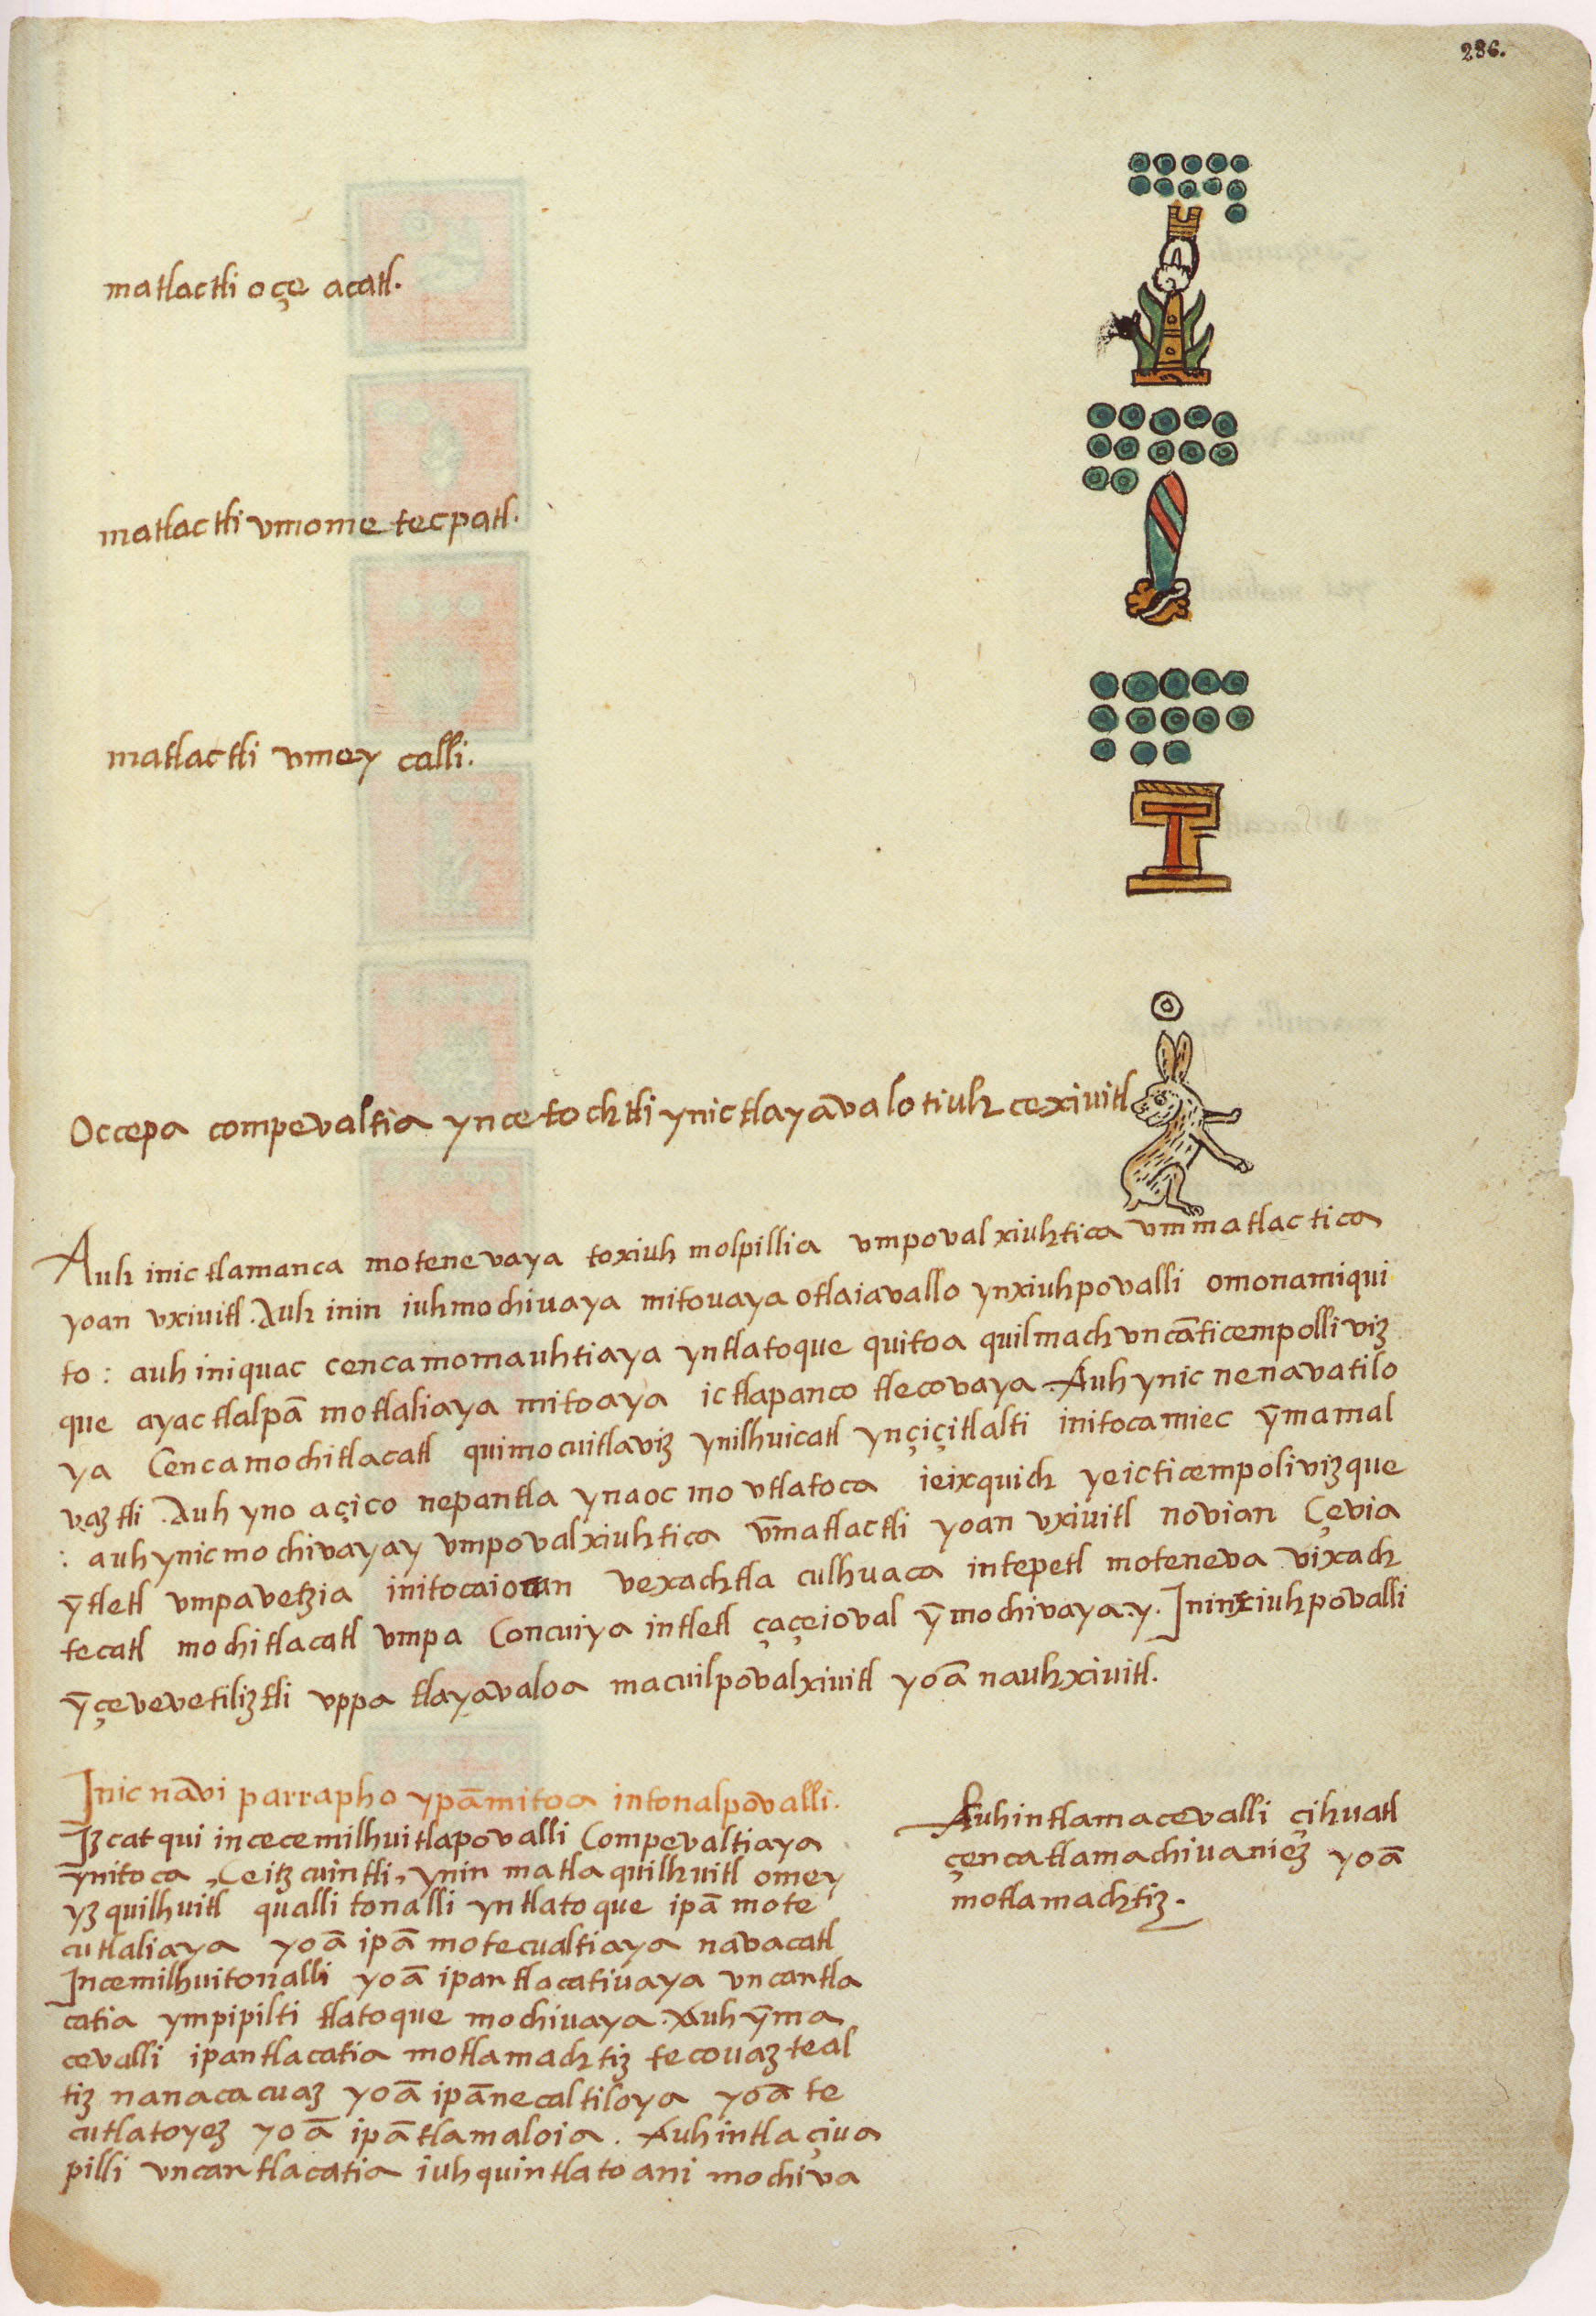 286.
matlactli oçe acatl.
matlactli vmome tecpatl.
matlactli vmey calli.
Occepa compevaltia yn ce tochtli ynic tlayāvalotiuh cexiuitl
Auh inic tlamanca motenevaya toxiuh molpillia vmpoval xiuhtica vmmatlactica
yoan vxiuitl. Auh inin iuhmochiuaya mitouaya otlaiavallo ynxiuhpovalli omonamiqui
to: auh iniquac cencamomauhtiaya yntlatoque quitoa quilmach vncāticempolliviz
que ayac tlalpā motlaliaya mitoaya ic tlapanco tlecovaya. Auh ynic nenavatilo
ya Cencamochitlacatl quimocuitlaviz ynilhuicatl ynçiçitlalti initocamiec ȳmamal
vaztli. Auh yno açico nepantla ynaoc mo vtlatoca ieixquich yeicticempolivizque
: auh ynic mochivayay vmpovalxiuhtica v̄matlactli yoan vxiuitl novian Çevia
ȳtletl vmpavetzia initocaiocan vexachtla culhuaca intepetl moteneva vixach
tecatl mochitlacatl vmpa Concuiya intletl çaçeioval ȳmochivaya.y. Ininxiuhpovalli
ȳçevevetiliztli vppa tlayavaloa macuilpovalxiuitl yoā nauhxiuitl.
Inic nāvi parrapho ypāmitoa intonalpovalli.
Izcatqui incecemilhuitlapovalli Compevaltiaya
ynitoca, Ceitzcuintli, ynin matlaquilhuitl omey
yzquilhuitl qualli tonalli yntlatoque ipā mote
cutlaliaya yoā ipā motecualtiaya navacatl
Incemilhuitonalli yoā ipantlacatiuaya vncantla
catia ympipilti tlatoque mochiuaya. Auh ȳma
cevalli ipantlacatia motlamachtiz tecovaz teal
tiz nanacacuaz yoā ipānecaltiloya yoā te
cutlatoyez yoā ipātlamaloia. Auhintlaçiua
pilli vncantlacatia iuhquintlatoani mochiva
Auhintlamacevalli çihuatl
çencatlamachiuaniez yoā
motlamachtiz.